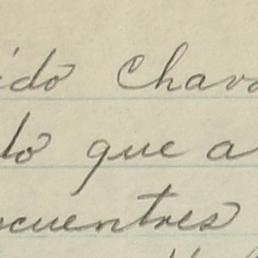 ido Chava
do que a
cuentres